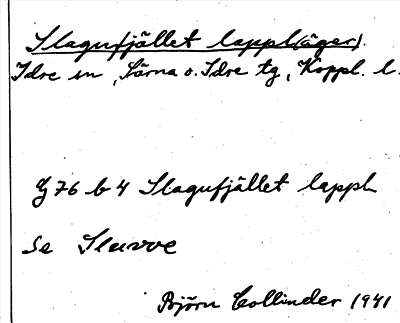 Slagufjället lappl(äger).
Idre sn, Särna o. Idre tg, Koppl. l.
G 76 b 4 Slagufjället lappl
Se Sluvve
Björn Collinder 1941